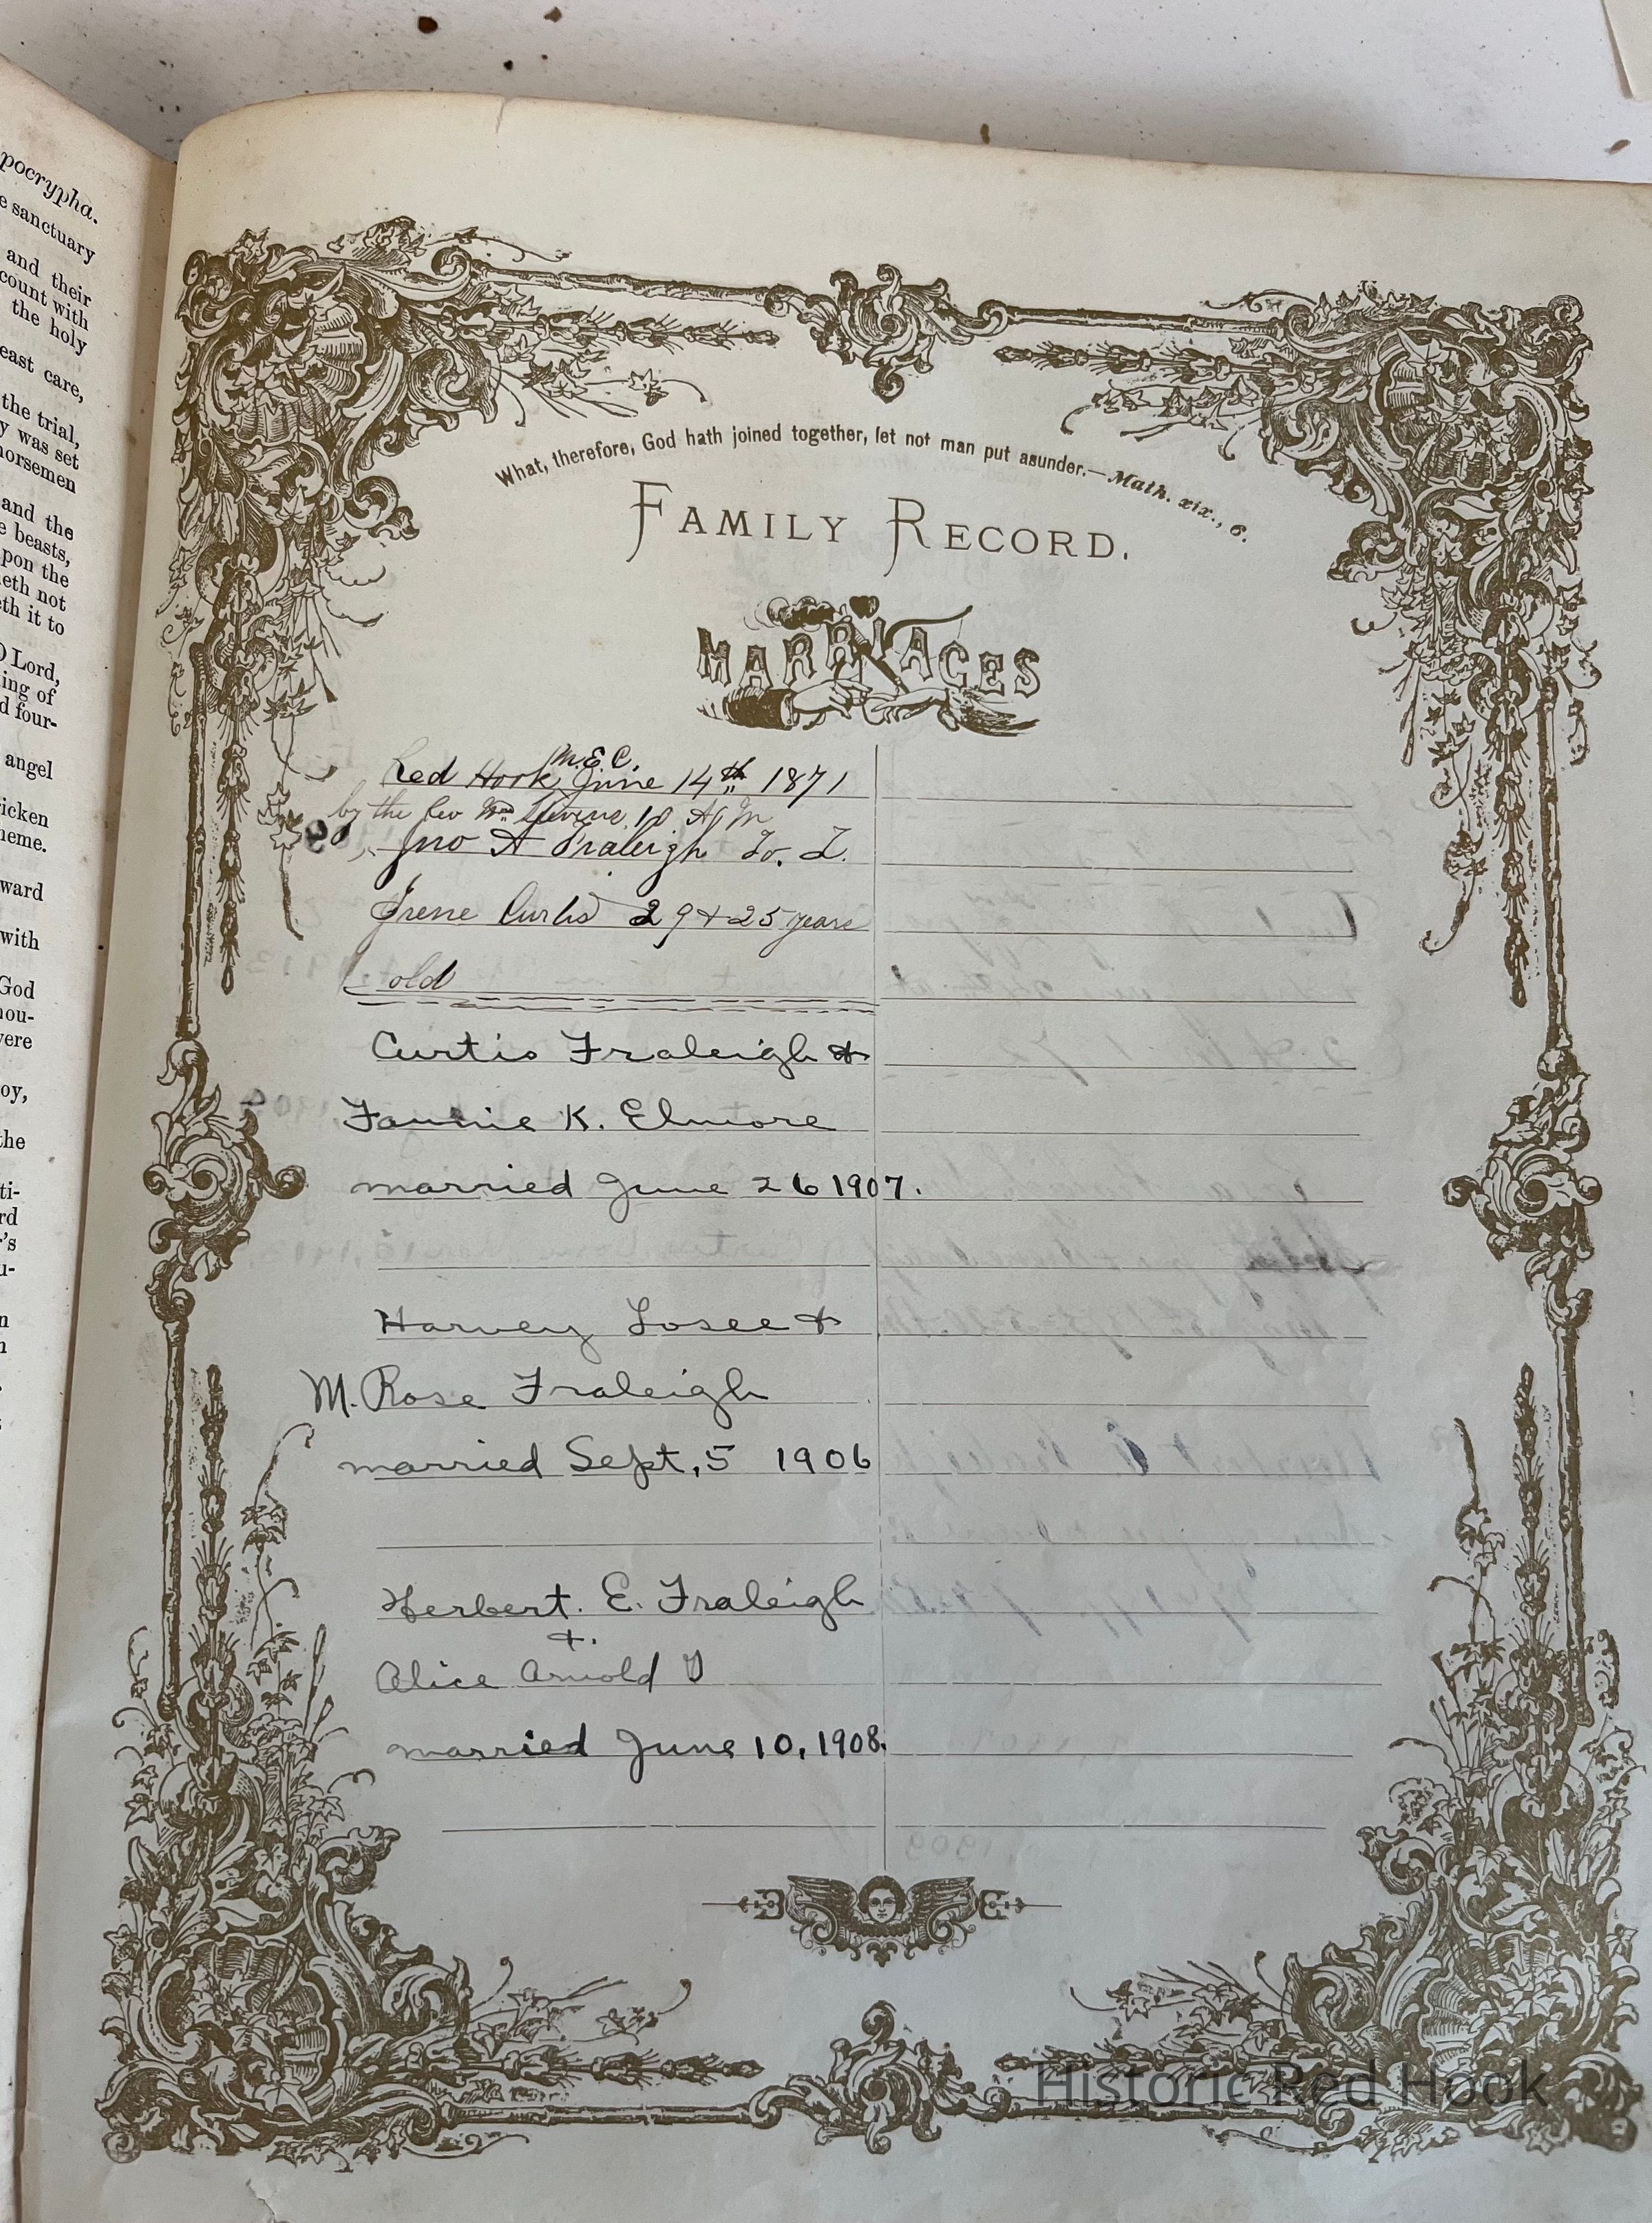 pocrypha.
e sanctuary
and their
count with
the holy
east care,
the trial,
y was set
horsemen
and the
e beasts,
pon the
eth not
eth it to
O Lord,
ing of
d four-
angel
icken
neme.
ward
with
God
hou-
vere
oy,
the
ti-
rd
r's
u-
n
n
What, therefore, God hath joined together, let not man put asunder.—Math. xix., 6.
FAMILY RECORD.
MARRIAGES
M.E.C.
Red Hook June 14th 1871
by the Rev Wm 10 A M
Jno A Fraleigh To. I.
Irene Curtis 29 + 25 years
old
Curtis Fraleigh +
Fannie K. Elmore
married June 26 1907.
Harvey Losee +
M. Rose Fraleigh
married Sept, 5 1906
Herbert. E. Fraleigh
+.
Alice Arnold
married June 10, 1908.
Historic Red Hook